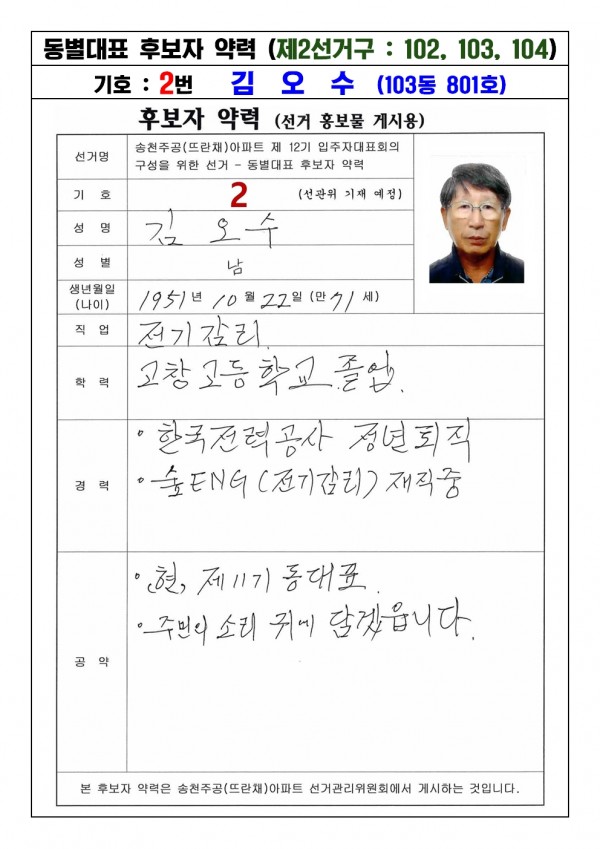 동별대표 후보자 약력 (제2선거구 : 102, 103, 104)
기호 : 2번 김 오 수 (103동 801호)
후보자 약력 (선거 홍보물 게시용)
선거명
송천주공(뜨란채)아파트 제 12기 입주자대표회의
구성을 위한 선거 - 동별대표 후보자 약력
기 호
2 (선관위 기재 예정)
성 명
김 오 수
성 별
남
생년월일
(나이)
1951년 10월 22일 (만 71세)
직 업
전기감리.
학 력
고창고등학교 졸업.
경 력
• 한국전력공사 정년퇴직
• 숲ENG (전기감리) 재직중
공 약
• 현, 제11기 동대표.
• 주민의 소리 귀에 담겠읍니다.
본 후보자 약력은 송천주공(뜨란채)아파트 선거관리위원회에서 게시하는 것입니다.